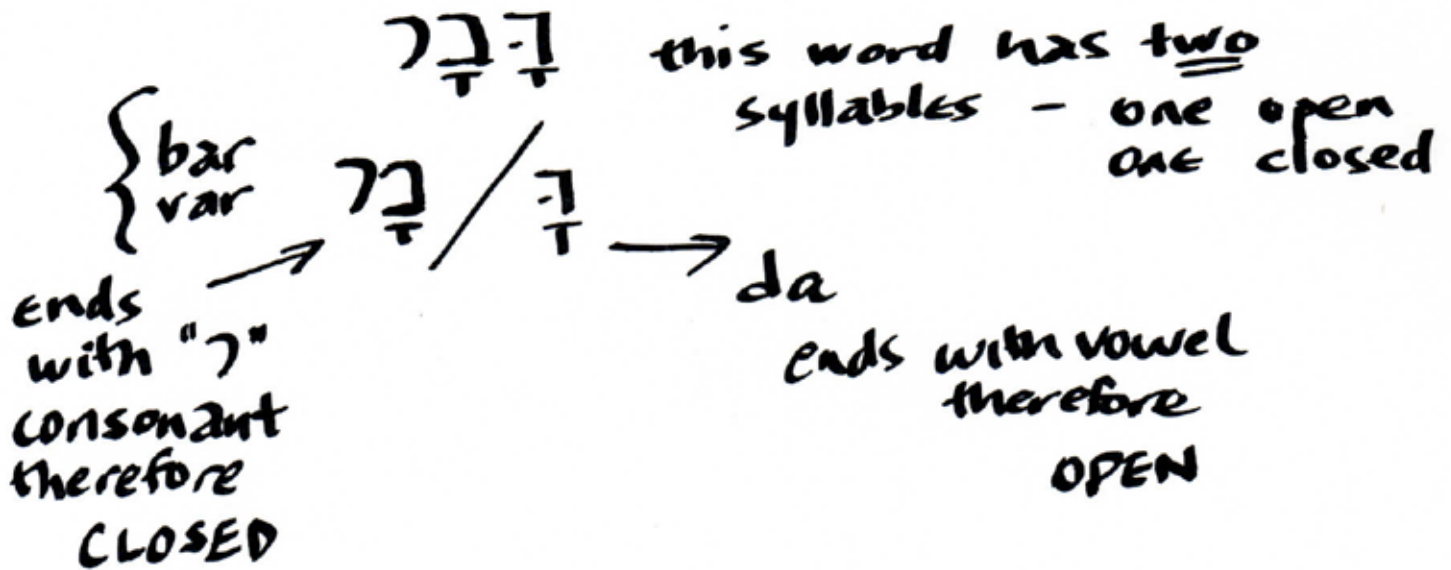 דָּבָר this word has two
syllables - one open
one closed
{bar
var
בָר / דָּ → da
ends
with "ר"
consonant
therefore
CLOSED
ends with vowel
therefore
OPEN